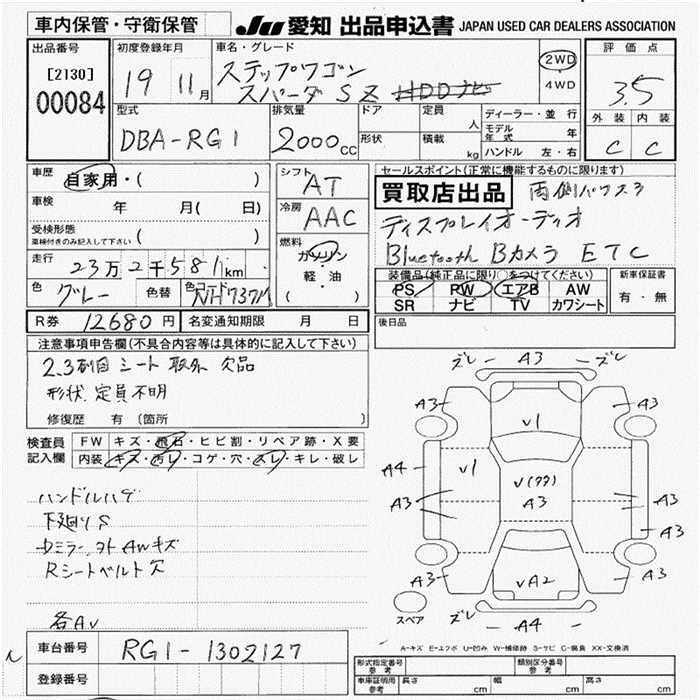 車内保管・守衛保管
JU 愛知 出品申込書 JAPAN USED CAR DEALERS ASSOCIATION
出品番号
[2130]
00084
初度登録年月
19 11月
車名・グレード
ステップワゴン
スパーダ SZ HDDナビ
2WD
4WD
評価点
3.5
外装 内装
C C
型式
DBA-RG1
排気量
2000cc
ドア
形状
定員 人
積載 kg
ディーラー・並行
モデル年式 年
ハンドル 左・右
車歴 自家用・( )
車検 年 月( 日)
受検形態 ( )
車検付きのみ記入して下さい
走行
23万2千581km
色 グレー 色替 色コード NH737M
シフト AT
冷房 AAC
燃料
ガソリン
軽・油
( )
セールスポイント(正常に機能するものに限ります)
買取店出品 両側パワスラ
ディスプレイオーディオ
Bluetooth Bカメラ ETC
装備品(純正品に限り○をつけてください)
PS PW エアB AW
SR ナビ TV カワシート
新車保証書
有・無
R券 12680円 名変通知期限 月 日
後日品
注意事項申告欄(不具合内容等は具体的に記入して下さい)
2.3列目シート取外 欠品
形状 定員不明
修復歴 有 (箇所 )
検査員記入欄
FW キズ・飛石・ヒビ割・リペア跡・X要
内装 キズ・汚レ・コゲ・穴・スレ・キレ・破レ
ハンドルハゲ
下廻りS
Dミラー、外AWキズ
Rシートベルト欠
各AV
ズレ A3 ズレ
A3 A3
V1
A4 V1 V(ワワ)
A3 A3 A3
A3
A3 VA2 A3
スペア ズレ A4
A-キズ E-エクボ U-凹み W-補修跡 S-サビ C-腐食 XX-交換済
車台番号 RG1-1302127
登録番号
形式指定番号
参考
類別区分番号
参考
車庫証明用
参考
長さ cm 幅 cm 高さ cm